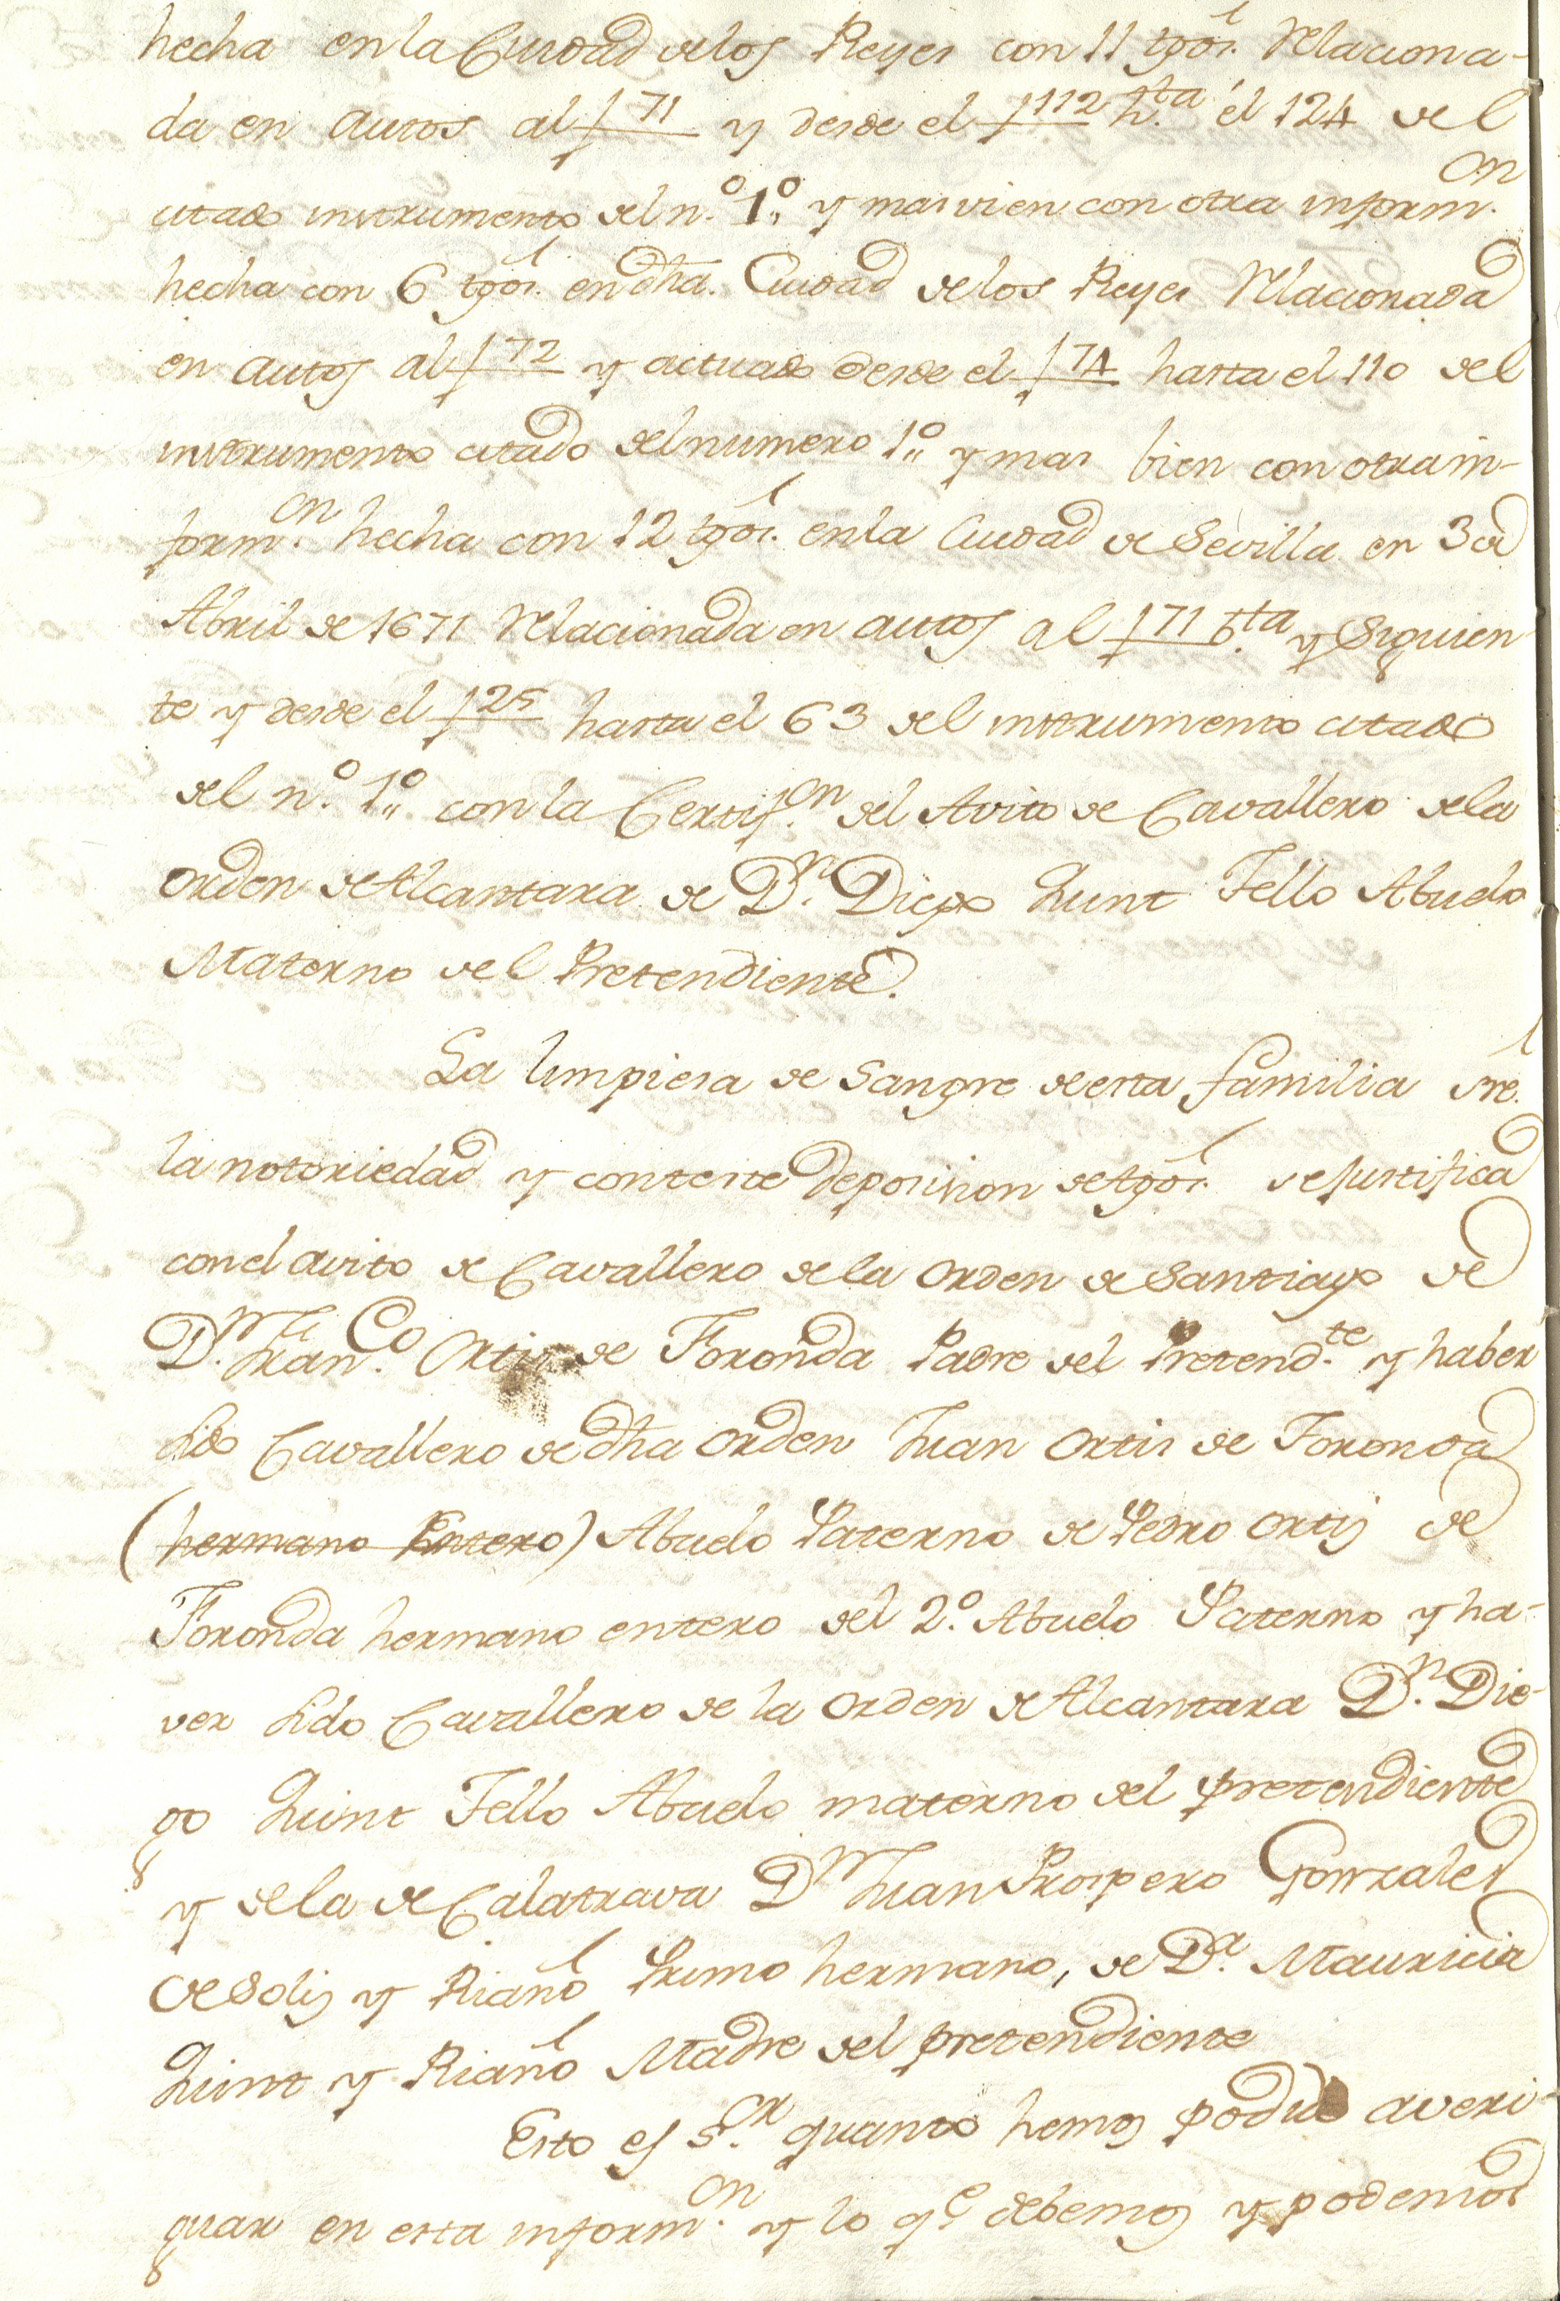 hecha en la Ciudad de los Reyes con 11 tgos. relaciona-
da en autos al f 71 y desde el f 112 h.ta el 124 del
citado instrumento del n.o 1.o y mas vien con otra inform.cn
hecha con 6 tgos. en dha. Ciudad de los Reyes relacionada
en autos al f 72 y actuado desde el f 74 hasta el 110 del
instrumento citado del numero 1.o y mas bien con otra in-
form.cn hecha con 12 tgos. en la Ciudad de Sevilla en 3 de
Abril de 1671 relacionada en autos al f 71 b.ta y Siguien
te y desde el f 25 hasta el 63 del instrumento citado
del n.o 1.o con la Certif.cn del Avito de Cavallero de la
Orden de Alcantara de D.n Diego Lunt Tello Abuelo
Materno del Pretendiente.
La limpiesa de Sangre de esta familia sre.
la notoriedad y conteste deposision de tgos. se justifica
con el avito de Cavallero de la Orden de Santiago de
D.n Fran.co Ortis de Foronda Padre del Pretend.te y haber
sido Cavallero de dha Orden Juan Ortis de Foronda
(hermano Entero) Abuelo Paterno de Pedro Ortis de
Foronda hermano entero del 2.o Abuelo Paterno y ha-
ver sido Cavallero de la Orden de Alcantara D.n Die-
go Luint Tello Abuelo materno del pretendiente
y de la de Calatrava D.n Juan Prospero Gonzales
de Solis y Riaño Primo hermano, de D.a Mauricia
Luint y Riaño Madre del pretendiente
Esto es S.or quanto hemos podido averi
guar en esta inform.cn y lo q.e debemos y podemos